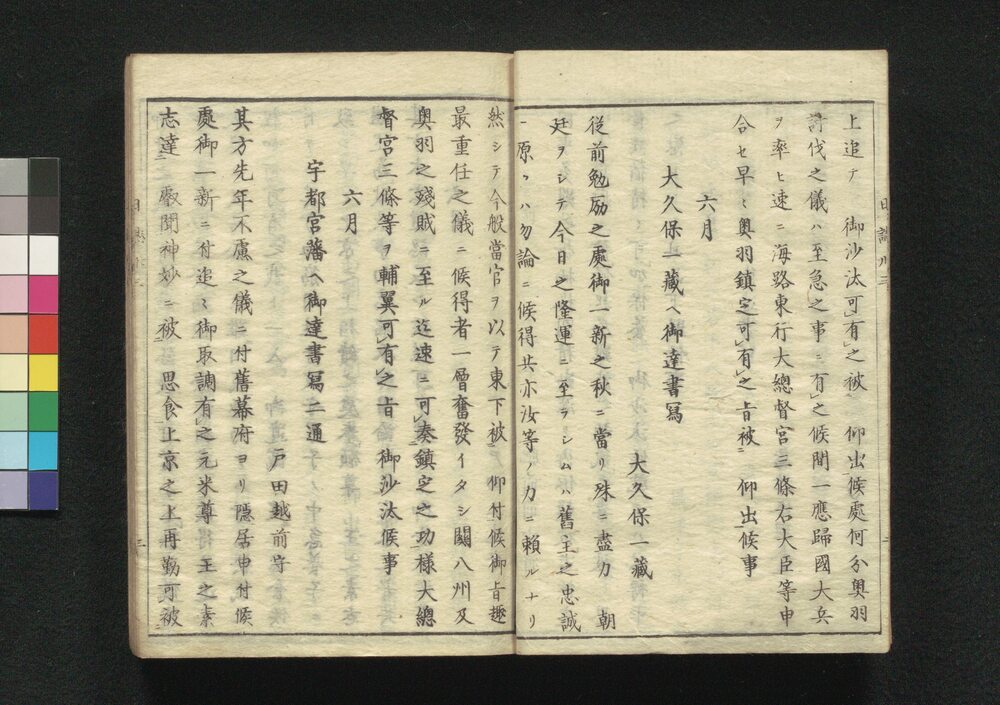 上追テ　御沙汰可有之被　仰出候處何分奥羽
討伐之儀ハ至急之事ニ有之候間一應歸國大兵
ヲ率ヒ速ニ海路東行大總督宮三條右大臣等申
合セ早々奥羽鎮定可有之旨被　仰出候事
六月
大久保一藏ヘ御達書寫
大久保一藏
從前勉励之處御一新之秋ニ當リ殊ニ盡力　朝
廷ヲシテ今日之隆運ニ至ラシムハ舊主之忠誠
ニ原クハ勿論ニ候得共亦汝等ノ力ニ頼ルナリ
然シテ今般當官ヲ以テ東下被　仰付候御旨趣
最重任之儀ニ候得者一層奮發イタシ關八州及
奥羽之殘賊ニ至ル迄速ニ可奏鎮定之功様大總
督宮三條等ヲ輔翼可有之旨御沙汰候事
六月
宇都宮藩ヘ御達書寫二通
戸田越前守
其方先年不慮之儀ニ付舊幕府ヨリ隱居申付候
處御一新ニ付追々御取調有之元來尊　王之素
志達　叡聞神妙ニ被　思食上京之上再勤可被